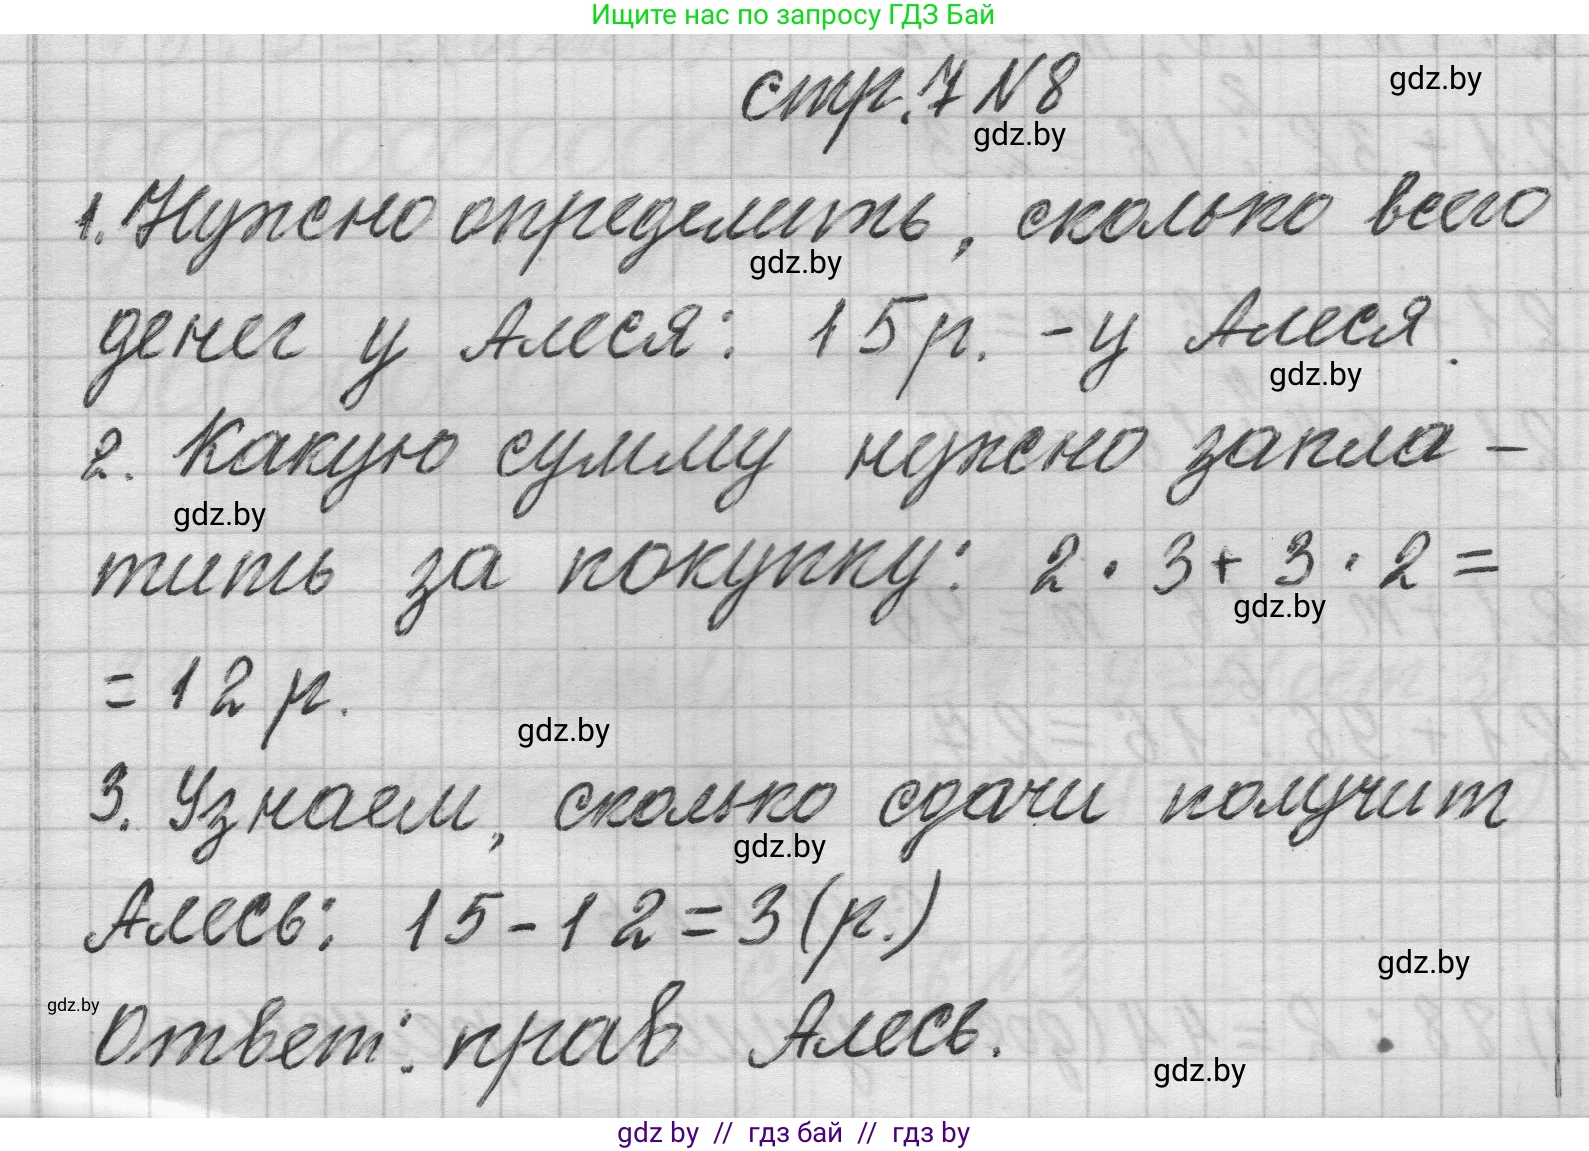 Ищите нас по запросу ГДЗ Бай
стр. 7 N 8
gdz.by
gdz.by
1. Нужно определить, сколько всего
gdz.by
денег у Алеся: 15 р. - у Алеся.
gdz.by
2. Какую сумму нужно запла-
gdz.by
тить за покупку: 2 · 3 + 3 · 2 =
gdz.by
= 12 р.
gdz.by
3. Узнаем, сколько сдачи получит
gdz.by
Алесь: 15 - 12 = 3 (р.)
gdz.by
gdz.by
Ответ: прав Алесь.
gdz.by
gdz by // гдз бай // гдз by